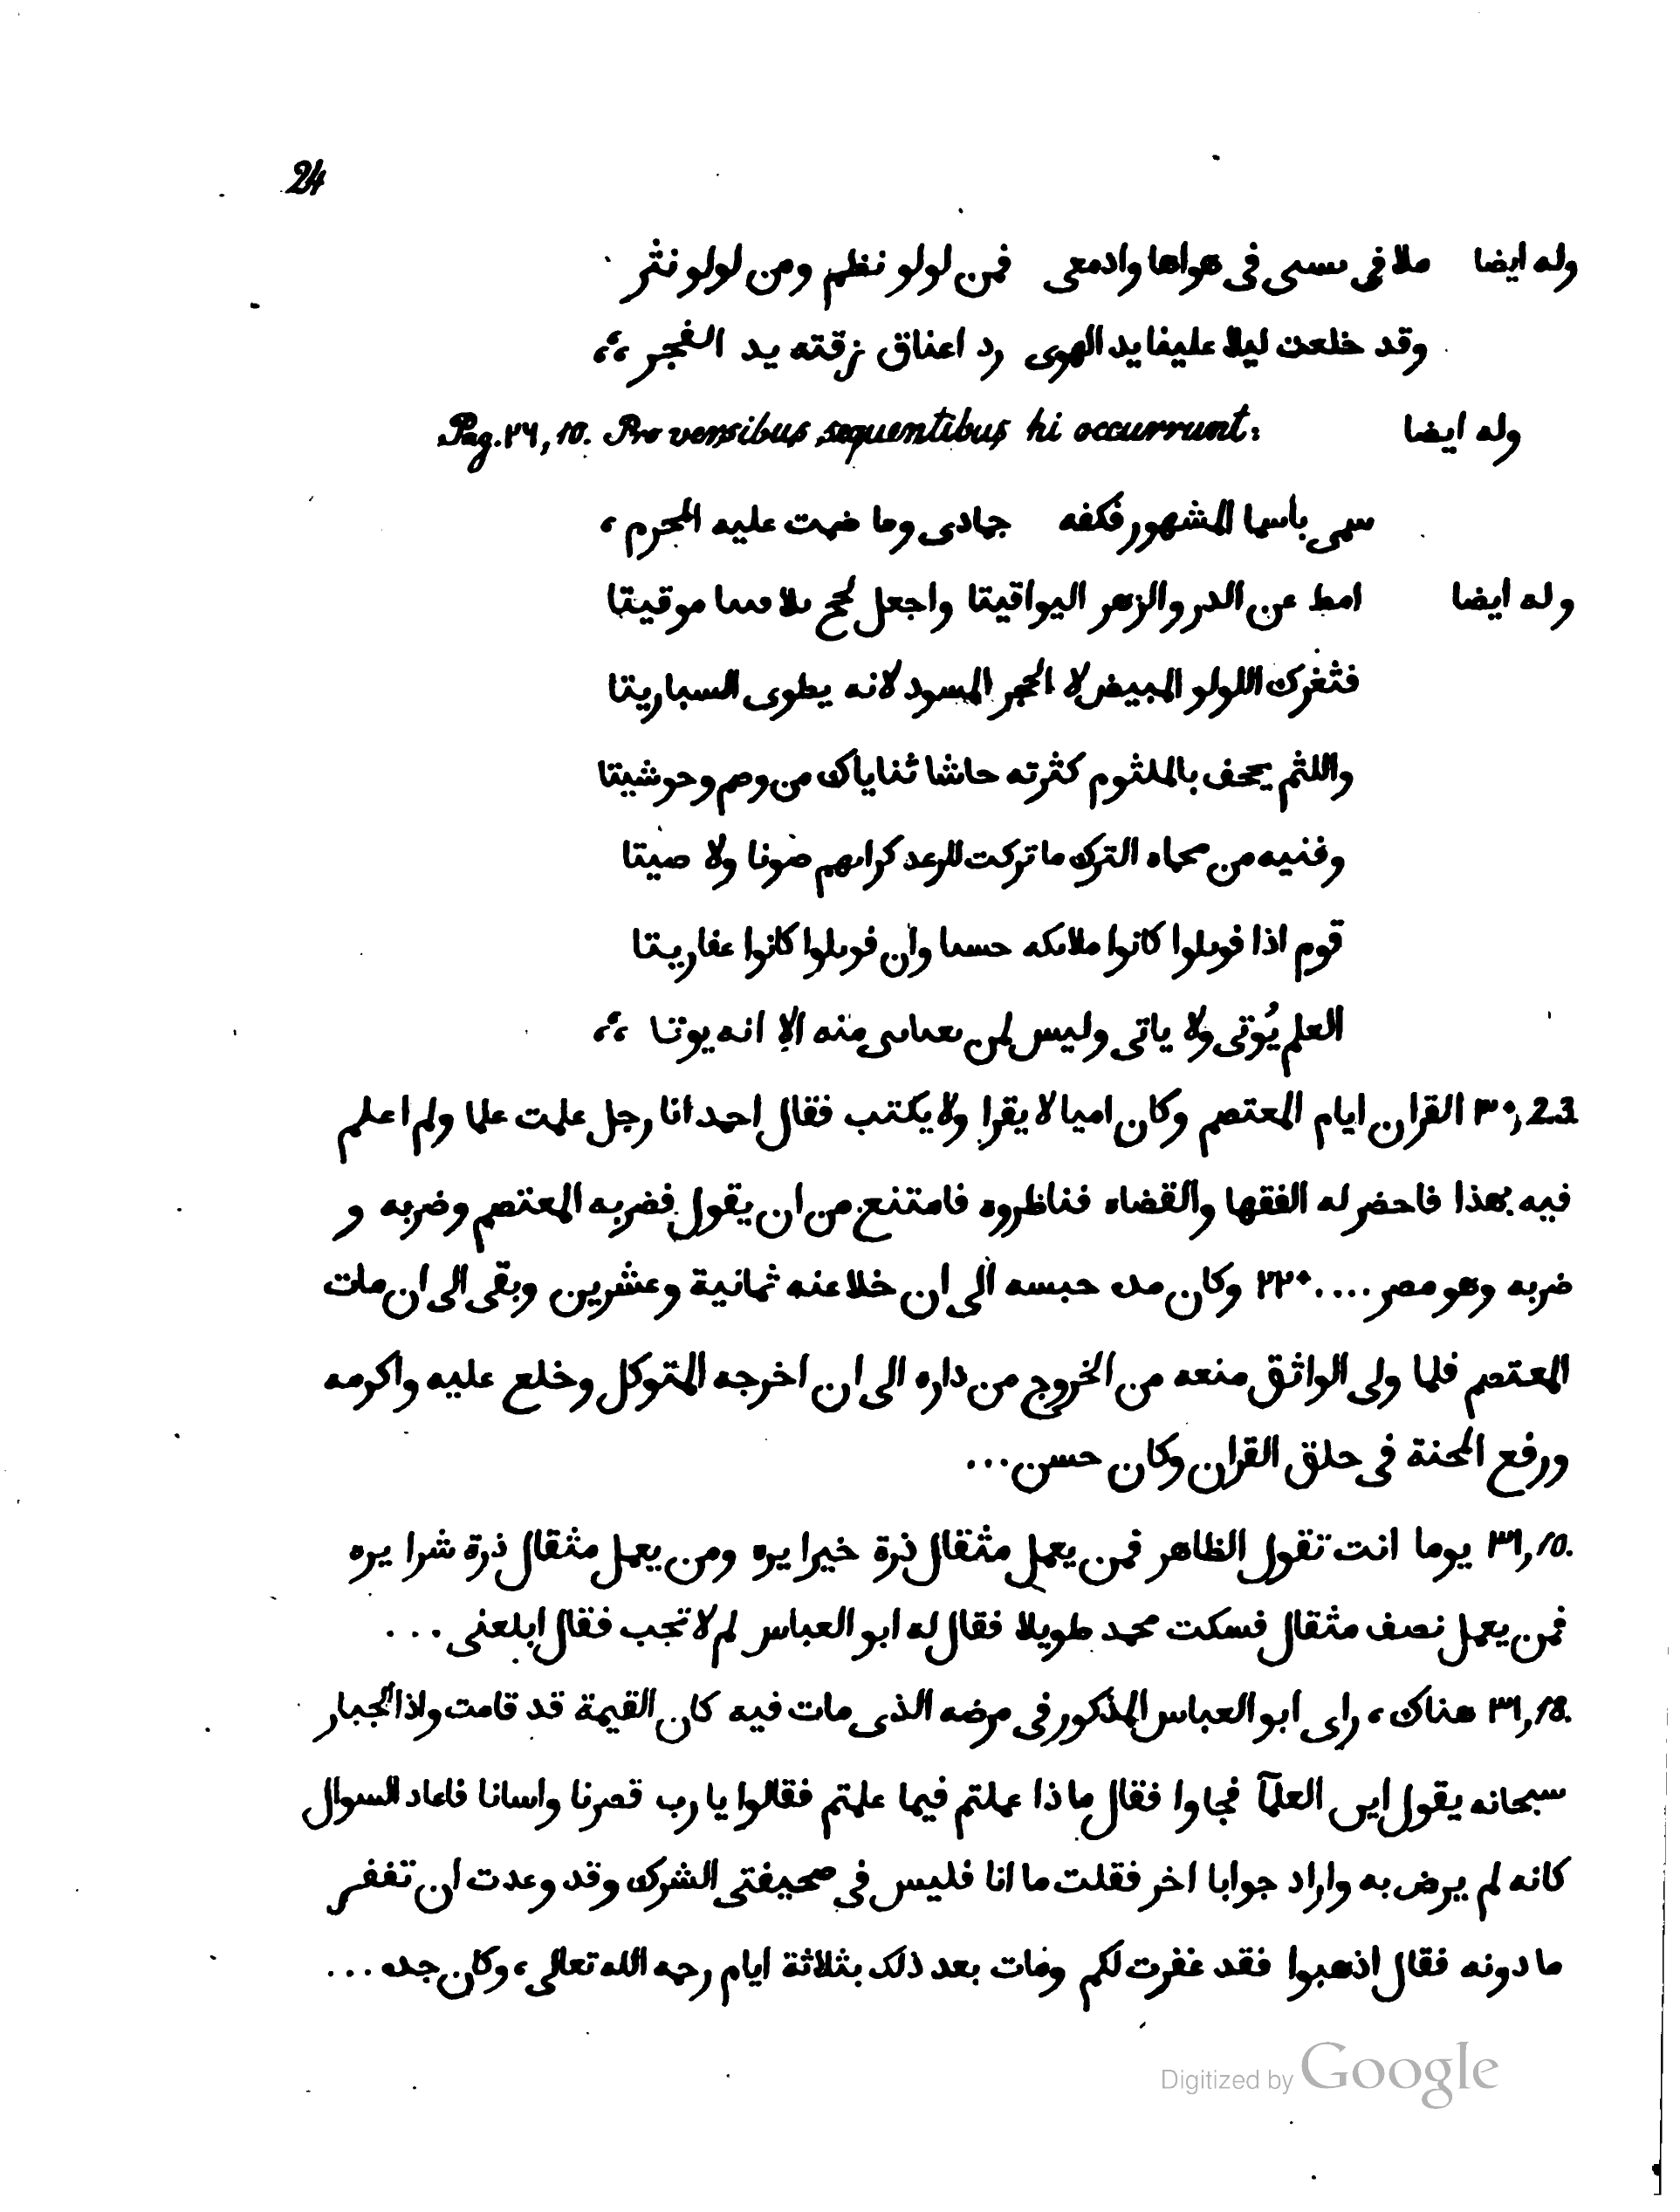 24
وله ايضا ملا فى سسى فى هواها وادمعى فمن لولو نظم ومن لولو نثر
وقد خلعت ليلا علينا يد الهوى رد اعناق زقته يد الفجر
وله ايضا Pag. ٢٦, 10. Pro versibus sequentibus hi occurrunt:
سمى باسما الشهور فكفه جمادى وما ضمت عليه المحرم ،
وله ايضا امط عن الدر والزهر اليواقيتا واجعل لحج موقيتا
فثغرك اللولو المبيض لا الحجر المسود لانه يطوى السباريتا
واللثم يجحف بالملثوم كثرته حاشا ثناياك من وصم وحوشيتا
وفتيه من محاه الترك ما تركت للرعد صوتا ولا صيتا
قوم اذا قوىلوا كانوا ملاىكه حسىا وان قوىلوا كانوا عفاريتا
العلم يُوتى ولا ياتى وليس لمن منه الا انه يوتا
٣٠, 2.3 القران ايام المعتصم وكان اميا لا يقرا ولا يكتب فقال احمد انا رجل علمت علما ولم اعلم
فيه بهذا فاحضر له الفقها والقضاه فناظروه فامتنع من ان يقول فضربه المعتصم وضربه و
ضربه وهو مصر .... ٢٢٠ وكان مده حبسه الى ان خلا عنه ثمانية وعشرين وبقى الى ان مات
المعتصم فلما ولى الواثق منعه من الخروج من داره الى ان اخرجه المتوكل وخلع عليه واكرمه
ورفع المحنة فى حلق القران وكان حسن ...
٣١, 10. يوما انت تقول الظاهر فمن يعمل مثقال ذرة خيرا يره ومن يعمل مثقال ذرة شرا يره
فمن يعمل نصف مثقال فسكت محمد طويلا فقال له ابو العباس لم لا تجب فقال ابلعنى ...
٣١, 18. هناك ، راى ابو العباس المذكور فى مرضه الذى مات فيه كان القيمة قد قامت ولذا الجبار
سبحانه يقول اين العلمآ فجاوا فقال ما ذا عملتم فيما علمتم فقالوا يا رب قصرنا واسانا فاعاد السوال
كانه لم يرض به واراد جوابا اخر فقلت ما انا فليس فى صحيفتى الشرك وقد وعدت ان تغفر
ما دونه فقال اذهبوا فقد غفرت لكم ومات بعد ذلك بثلاثة ايام رحمه الله تعالى ، وكان جده ...
Digitized by Google